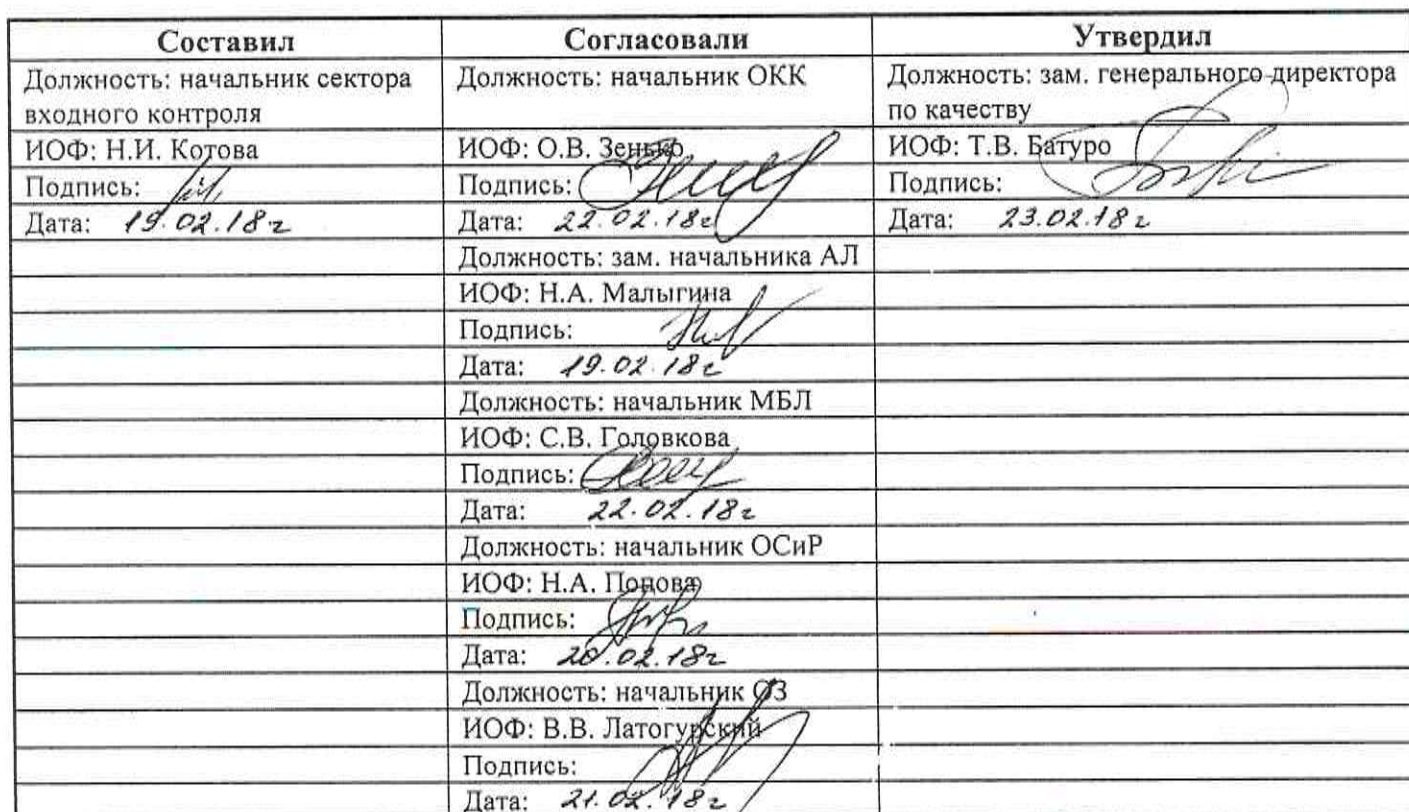 Составил Согласовали Утвердил
Должность: начальник сектора входного контроля Должность: начальник ОКК Должность: зам. генерального директора по качеству
ИОФ: Н.И. Котова ИОФ: О.В. Зенько ИОФ: Т.В. Батуро
Подпись: Подпись: Подпись:
Дата: 19.02.18г Дата: 22.02.18г Дата: 23.02.18г
Должность: зам. начальника АЛ
ИОФ: Н.А. Малыгина
Подпись:
Дата: 19.02.18г
Должность: начальник МБЛ
ИОФ: С.В. Головкова
Подпись:
Дата: 22.02.18г
Должность: начальник ОСиР
ИОФ: Н.А. Попова
Подпись:
Дата: 20.02.18г
Должность: начальник ОЗ
ИОФ: В.В. Латогурский
Подпись:
Дата: 21.02.18г